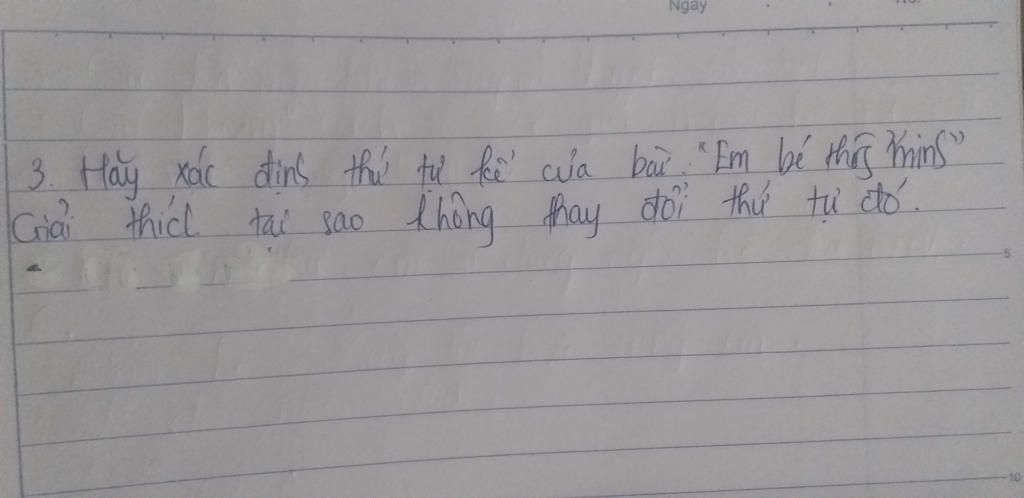 Ngày No.
3. Hãy xác định thứ tự kể của bài: "Em bé thôg minh"
Giải thích tại sao không thay đổi thứ tự đó.
5
10